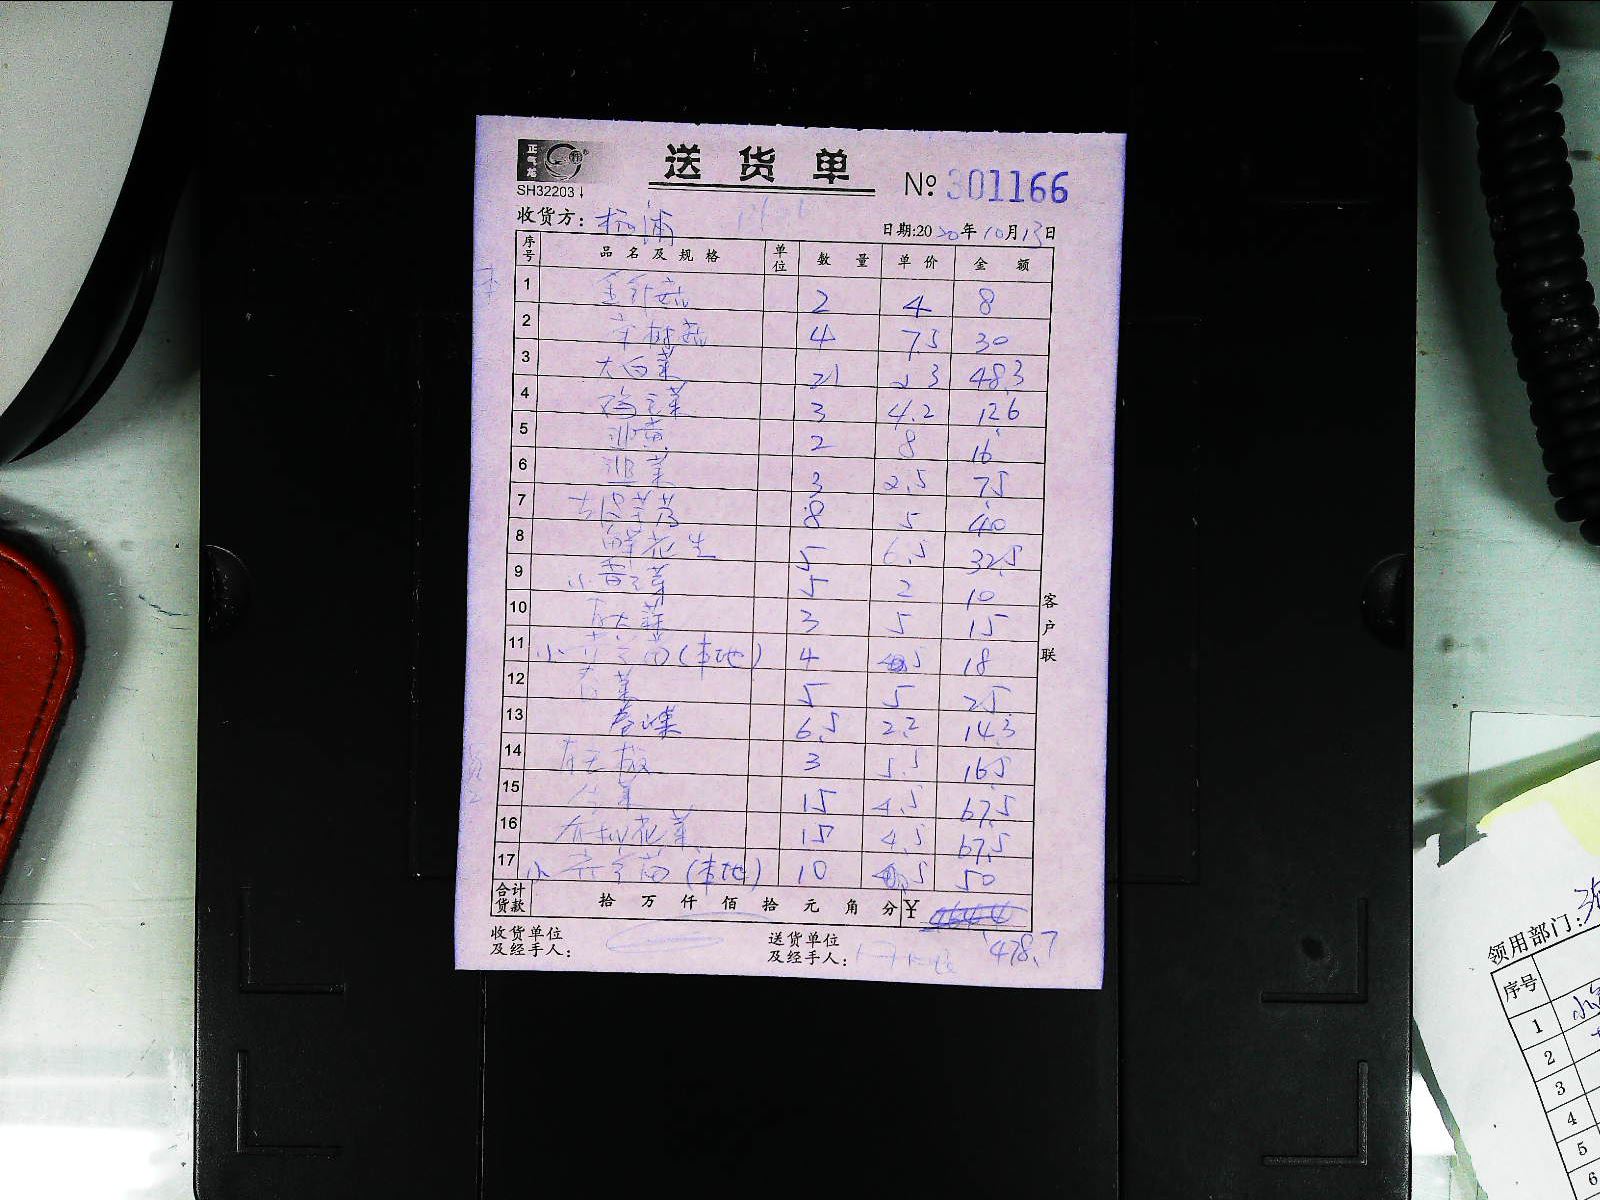 正气龙
SH32203
送货单
№ 301166
收货方: 杨浦
日期:2020年10月13日
序号 品名及规格 单位 数量 单价 金额
1 金针菇 2 4 8
2 平树菇 4 7.5 30
3 大白菜 21 2.3 48.3
4 鸡毛菜 3 4.2 12.6
5 韭黄 2 8 16
6 韭菜 3 2.5 7.5
7 芋艿 8 5 40
8 鲜花生 5 6.5 32.5
9 小 5 2 10
10 3 5 15
11 小 (本地) 4 .5 18
12 菜 5 5 25
13 卷心菜 6.5 2.2 14.3
14 3 5.5 16.5
15 菜 15 4.5 67.5
16 有机花菜 15 4.5 67.5
17 小 (本地) 10 5 50
合计货款 拾 万 仟 佰 拾 元 角 分 ¥
478.7
收货单位及经手人:
送货单位及经手人:
客户联
领用部门:
序号
1
2
3
4
5
6